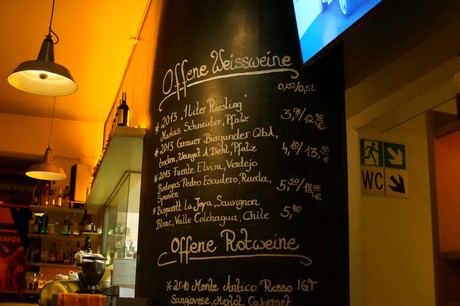 Offene Weissweine
0,25/0,5l
* 2013 "1 Liter Riesling"
Markus Schneider, Pfalz 3,90/12,90 €
* 2013 Grauer Burgunder QbA,
trocken, Weingut A. Diehl, Pfalz 4,10/13,50 €
* 2013 Fuente Elvira, Verdejo
Bodegas Pedro Escudero, Rueda, 5,50/18,00 €
Spanien
* Bisquertt La Joya, Sauvignon
Blanc, Valle Colchagua, Chile 5,90 €
Offene Rotweine
* 2010 Monte Antico Rosso IGT
Sangiovese, Merlot, Cabernet
WC